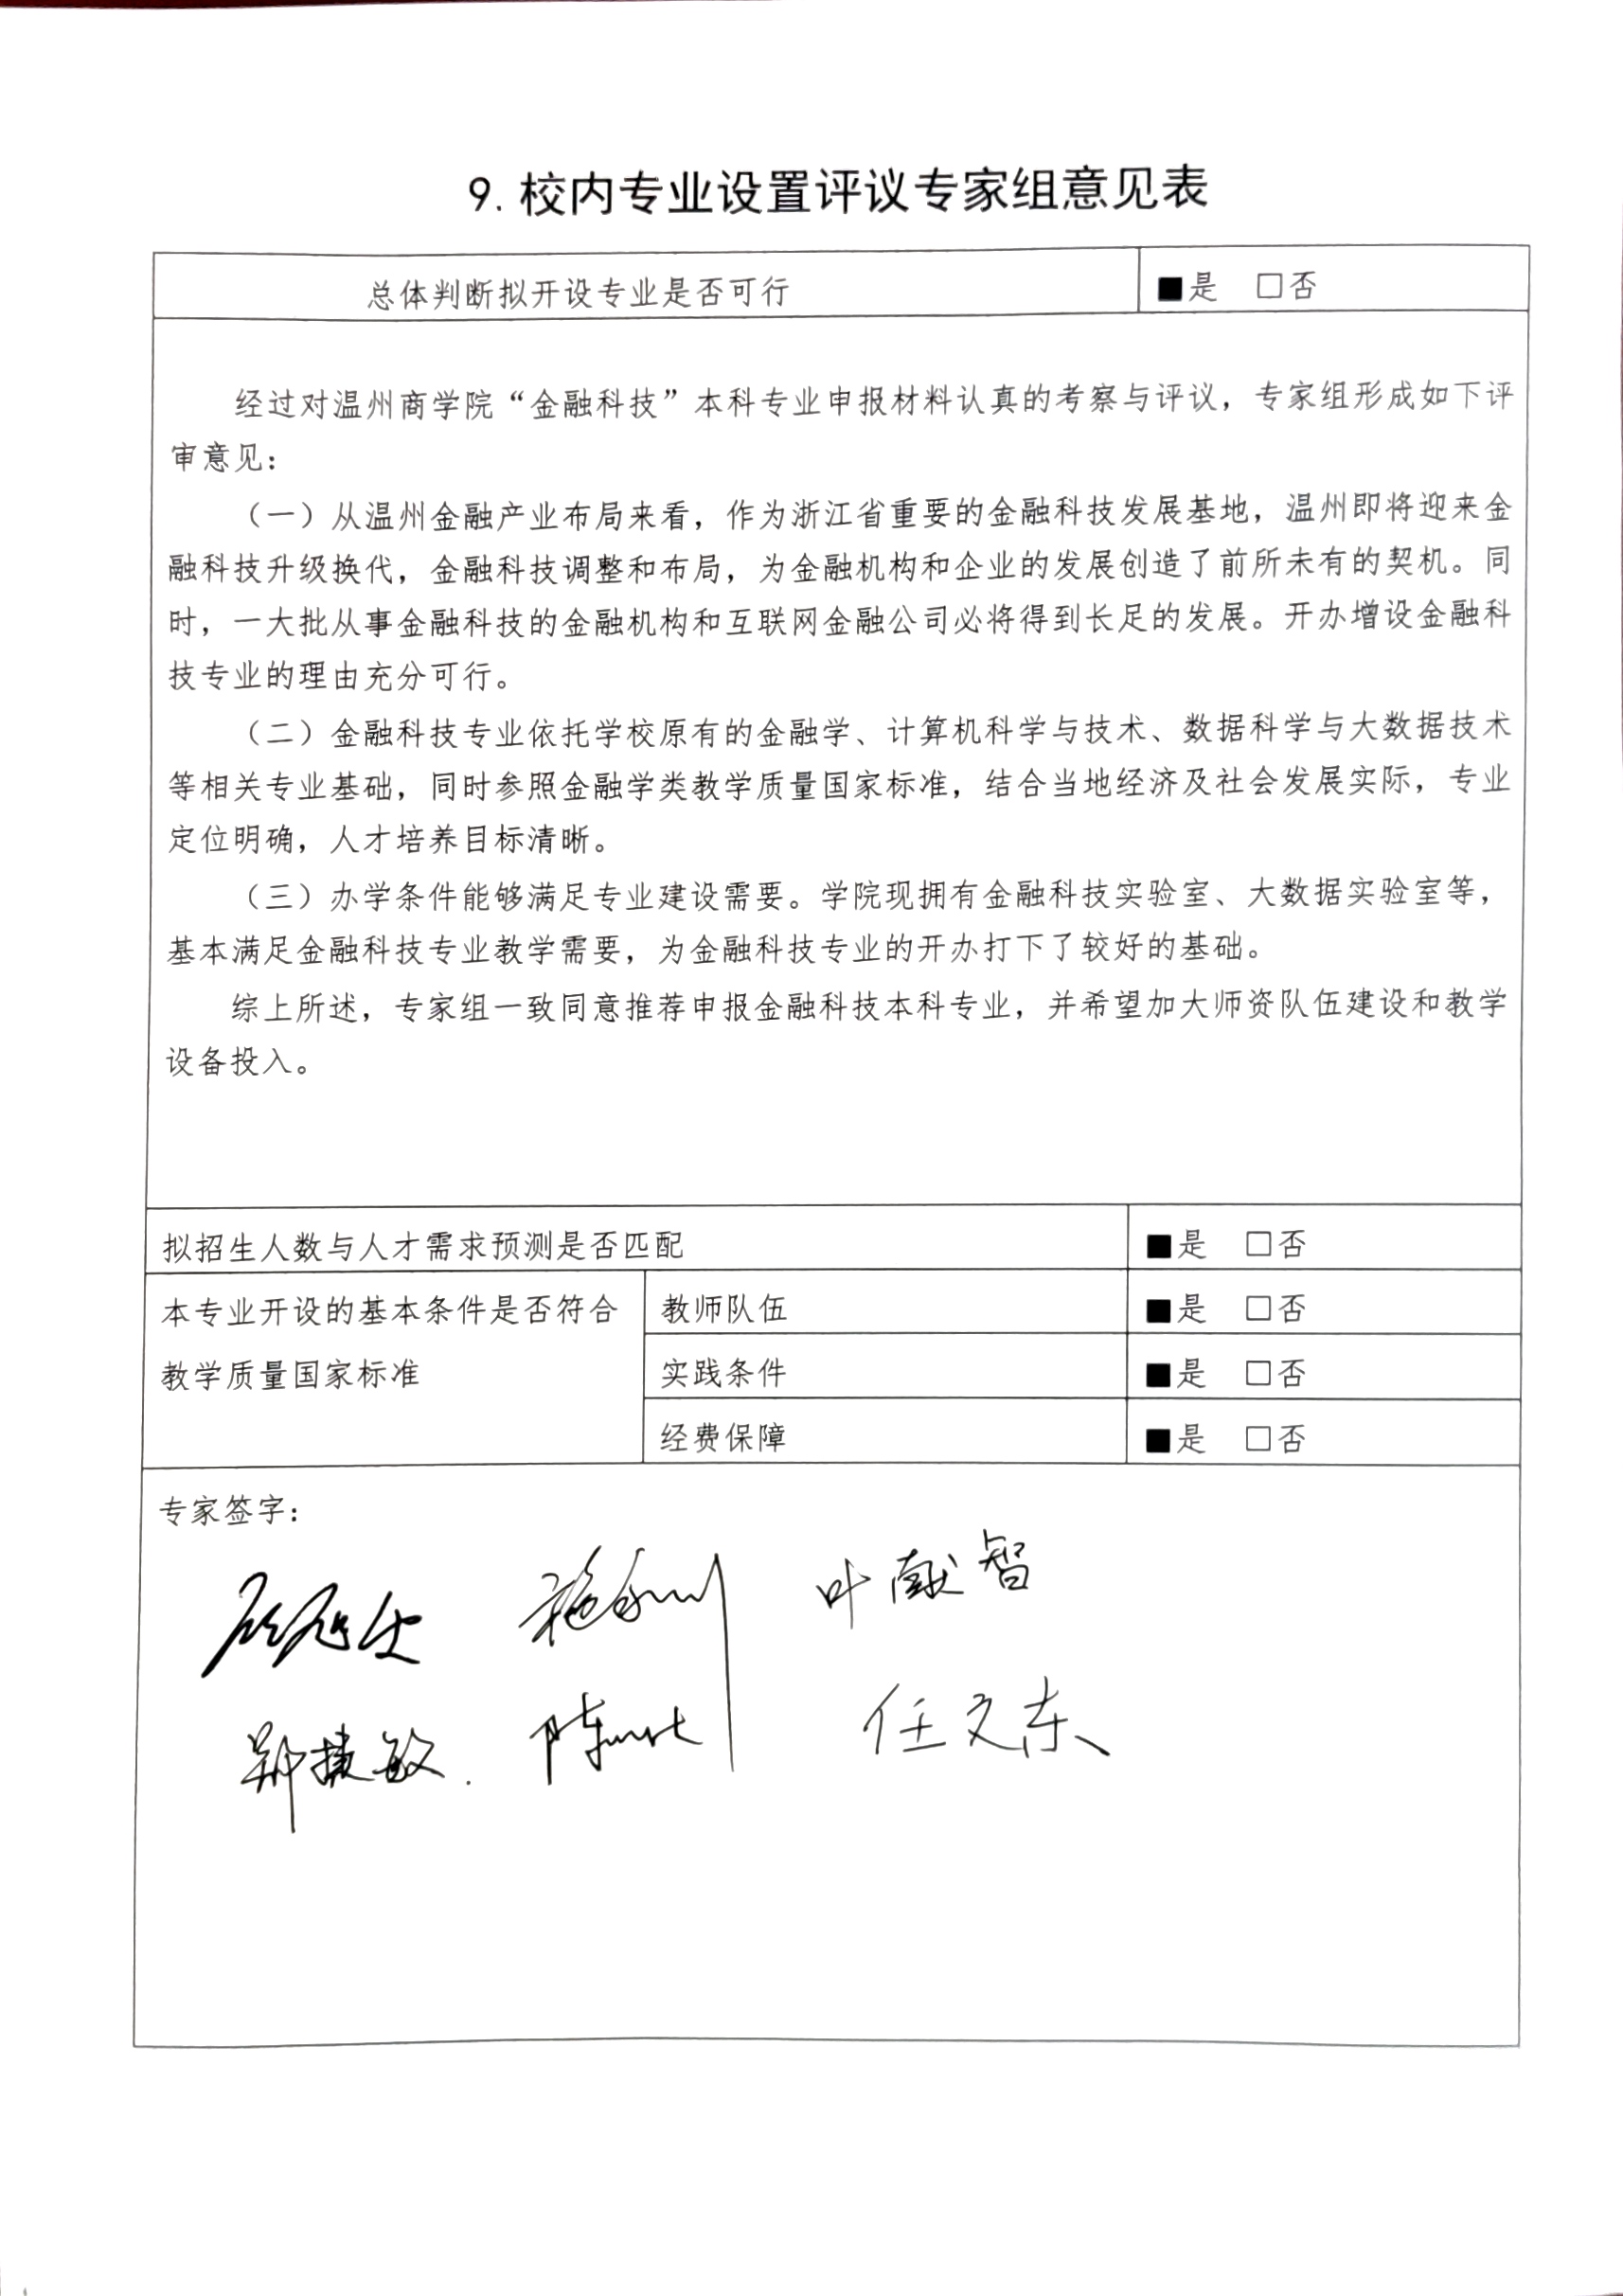 9.校内专业设置评议专家组意见表
总体判断拟开设专业是否可行 ■是 □否
经过对温州商学院“金融科技”本科专业申报材料认真的考察与评议，专家组形成如下评
审意见：
（一）从温州金融产业布局来看，作为浙江省重要的金融科技发展基地，温州即将迎来金
融科技升级换代，金融科技调整和布局，为金融机构和企业的发展创造了前所未有的契机。同
时，一大批从事金融科技的金融机构和互联网金融公司必将得到长足的发展。开办增设金融科
技专业的理由充分可行。
（二）金融科技专业依托学校原有的金融学、计算机科学与技术、数据科学与大数据技术
等相关专业基础，同时参照金融学类教学质量国家标准，结合当地经济及社会发展实际，专业
定位明确，人才培养目标清晰。
（三）办学条件能够满足专业建设需要。学院现拥有金融科技实验室、大数据实验室等，
基本满足金融科技专业教学需要，为金融科技专业的开办打下了较好的基础。
综上所述，专家组一致同意推荐申报金融科技本科专业，并希望加大师资队伍建设和教学
设备投入。
拟招生人数与人才需求预测是否匹配 ■是 □否
本专业开设的基本条件是否符合
教学质量国家标准
教师队伍 ■是 □否
实践条件 ■是 □否
经费保障 ■是 □否
专家签字：
叶献智
郑捷敏 陈 任文东